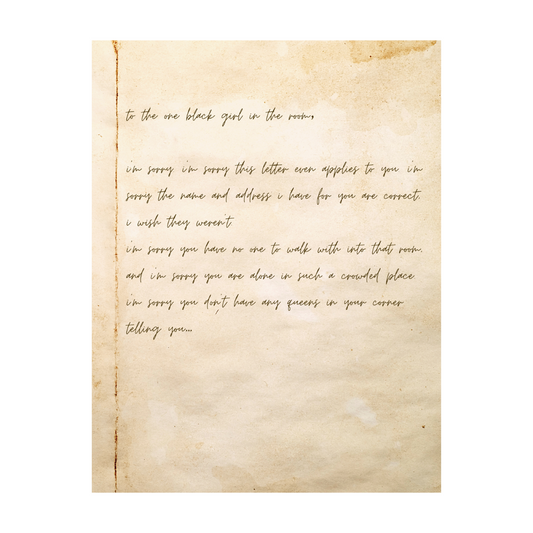 to the one black girl in the room,
i'm sorry. i'm sorry this letter even applies to you. i'm
sorry the name and address i have for you are correct.
i wish they weren't.
i'm sorry you have no one to walk with into that room.
and i'm sorry you are alone in such a crowded place.
i'm sorry you don't have any queens in your corner
telling you...